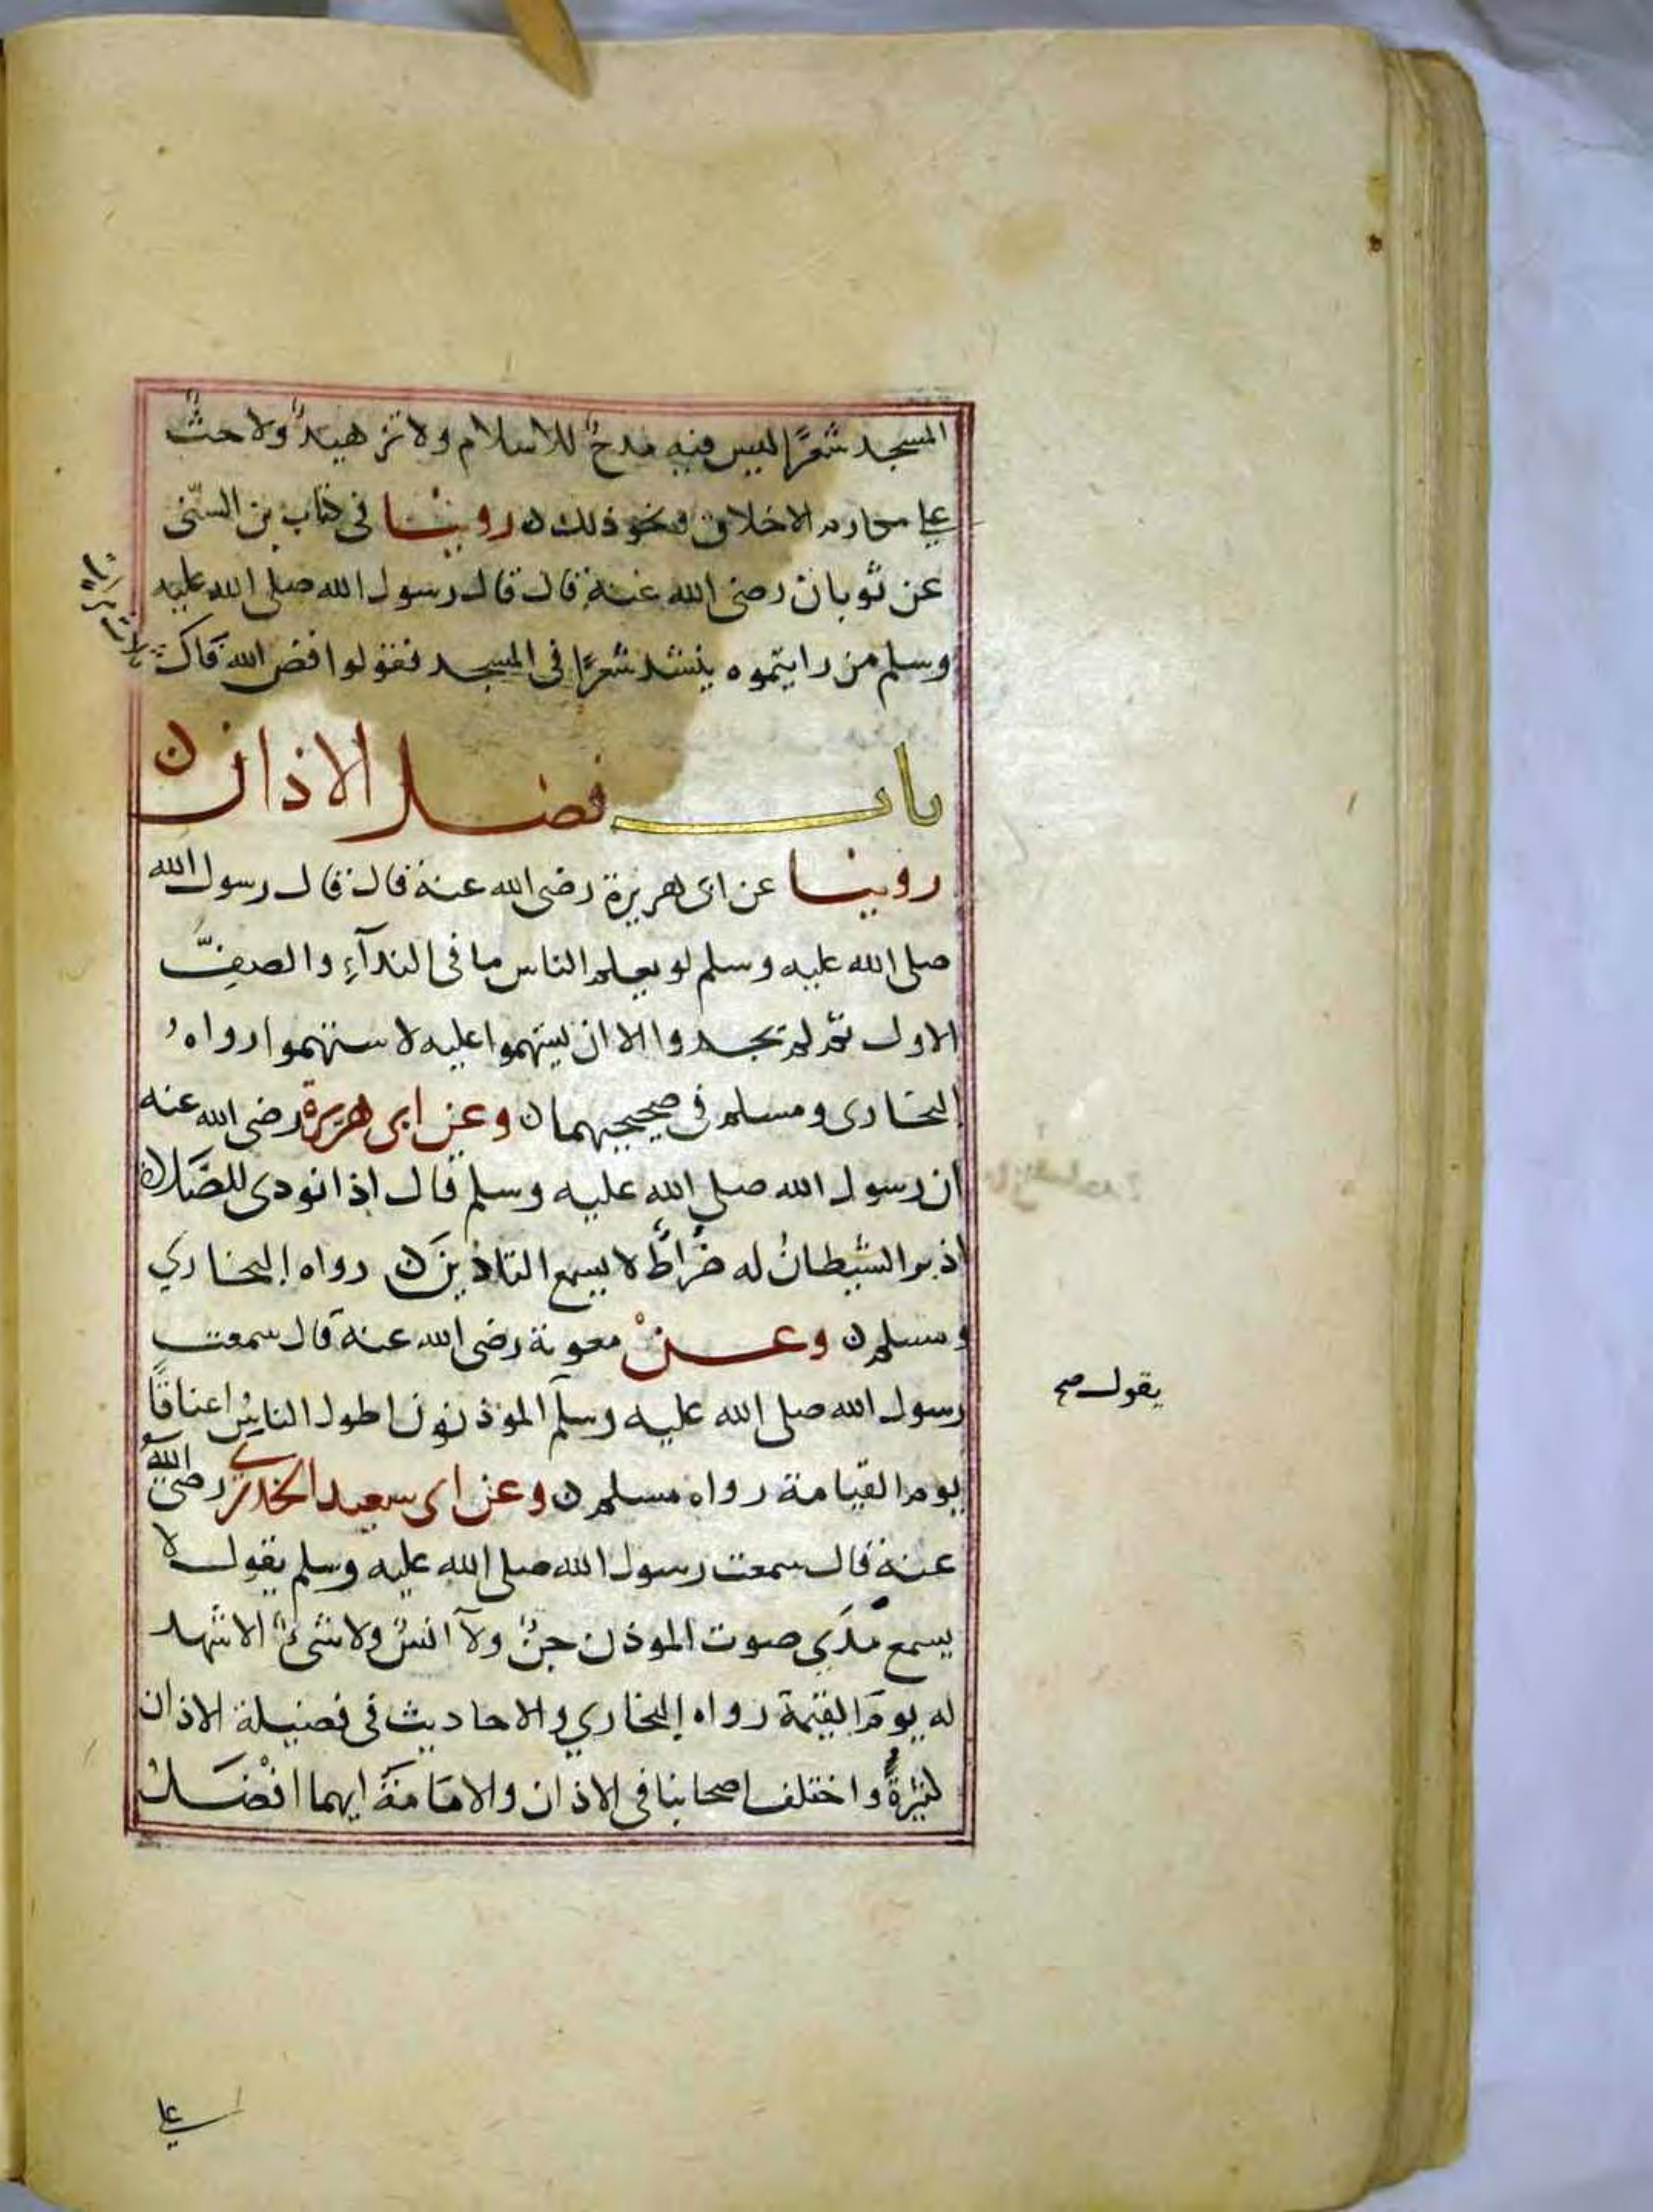 المسجد شعرًا ليس فيه مدحٌ للاسلام ولا تزهيدٌ ولا حثٌ
على مكارم الاخلاق ونحو ذلك ن روينا في كتاب بن السنّي
عن ثوبان رضى الله عنه قال قال رسول الله صلى الله عليه
وسلم من رايتموه ينشد شعرًا فى المسجد فقولوا فض الله فاك
ثلاث مرات
باب فضل الاذان ن
روينا عن ابى هريرة رضى الله عنه قال قال رسول الله
صلى الله عليه وسلم لو يعلم الناس ما فى الندآءِ والصفِّ
الاول ثم لم يجدوا الا ان يستهموا عليه لاستهموا رواهُ
البخارى ومسلم في صحيحيهما ن وعن ابى هريرة رضى الله عنه
ان رسول الله صلى الله عليه وسلم قال اذا نودى للصَّلاة
ادبر الشيطانُ له ضُراطٌ لا يسمع التاذين ن رواه البخاري
ومسلم ن وعن معوية رضى الله عنه قال سمعت
رسول الله صلى الله عليه وسلم الموذنون اطول الناسِ اعناقًا
يقول صح
يوم القيامة رواه مسلم ن وعن ابى سعيد الخدري رضى الله
عنه قال سمعت رسول الله صلى الله عليه وسلم يقول لا
يسمع مدَي صوت الموذن جنٌ ولآ انسٌ ولا شىءٌ الا شهد
له يومَ القيمة رواه البخاري والاحاديث فى فضيلة الاذان
كثيرةٌ واختلف اصحابنا فى الاذان والامَامَةَ ايهما افْضَلُ